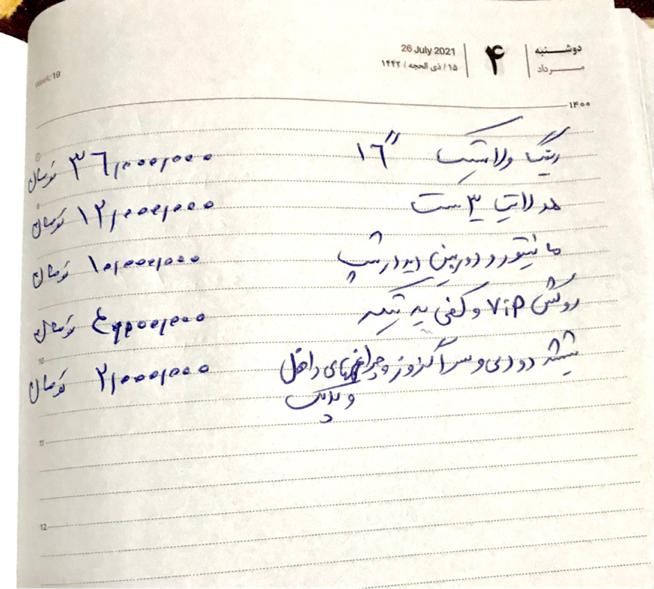 دوشنبه
مرداد
۴
26 July 2021
۱۵ / ذی الحجه / ۱۴۴۲
week 19
۱۴۰۰
رینگ و لاستیک ۱۶" ۳۶,۰۰۰,۰۰۰ تومان
هدلایت ۳ ست ۱۲,۰۰۰,۰۰۰ تومان
مانیتور و دوربین ۱۰,۰۰۰,۰۰۰ تومان
روکش ViP و کفی یه تیکه ۴,۰۰۰,۰۰۰ تومان
شیشه دودی و سر اگزوز و چراغهای داخل ۲,۰۰۰,۰۰۰ تومان
و پدیک
10
11
12